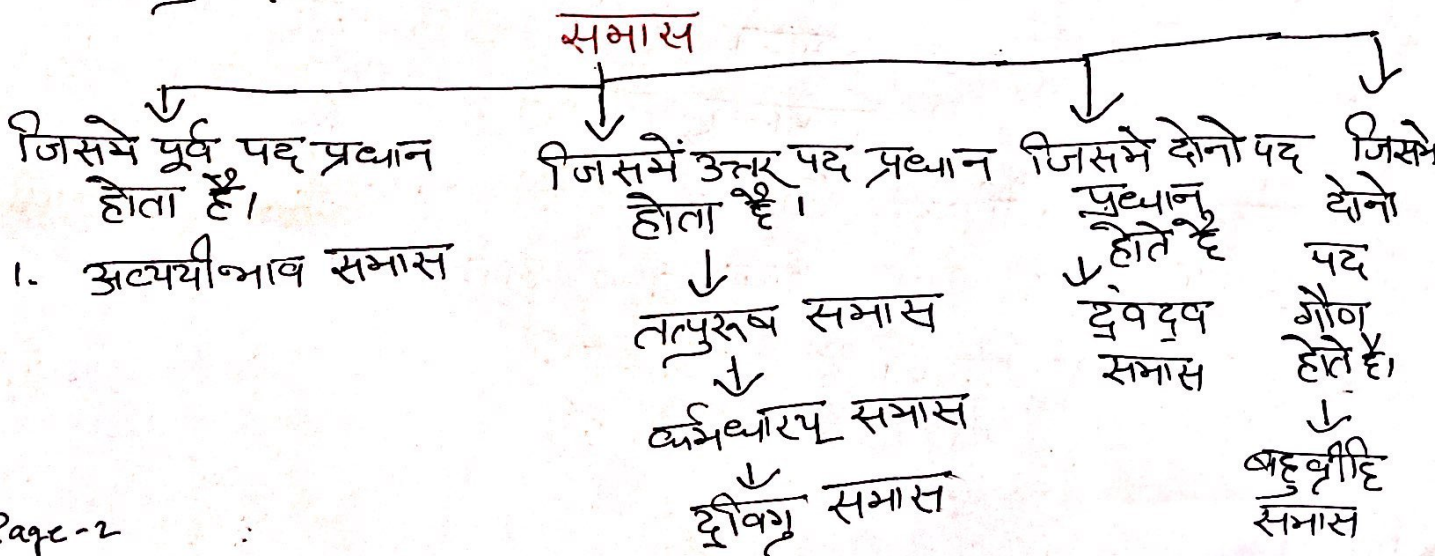 समास
जिसमे पूर्व पद प्रधान
होता है।
1. अव्ययीभाव समास
जिसमें उत्तर पद प्रधान
होता है।
तत्पुरूष समास
कर्मधारय समास
द्वीवगु समास
जिसमे दोनो पद
प्रधान
होते है
द्वंवद्व
समास
जिसमे
दोनो
पद
गौण
होते है।
बहुव्रीहि
समास
Page-2